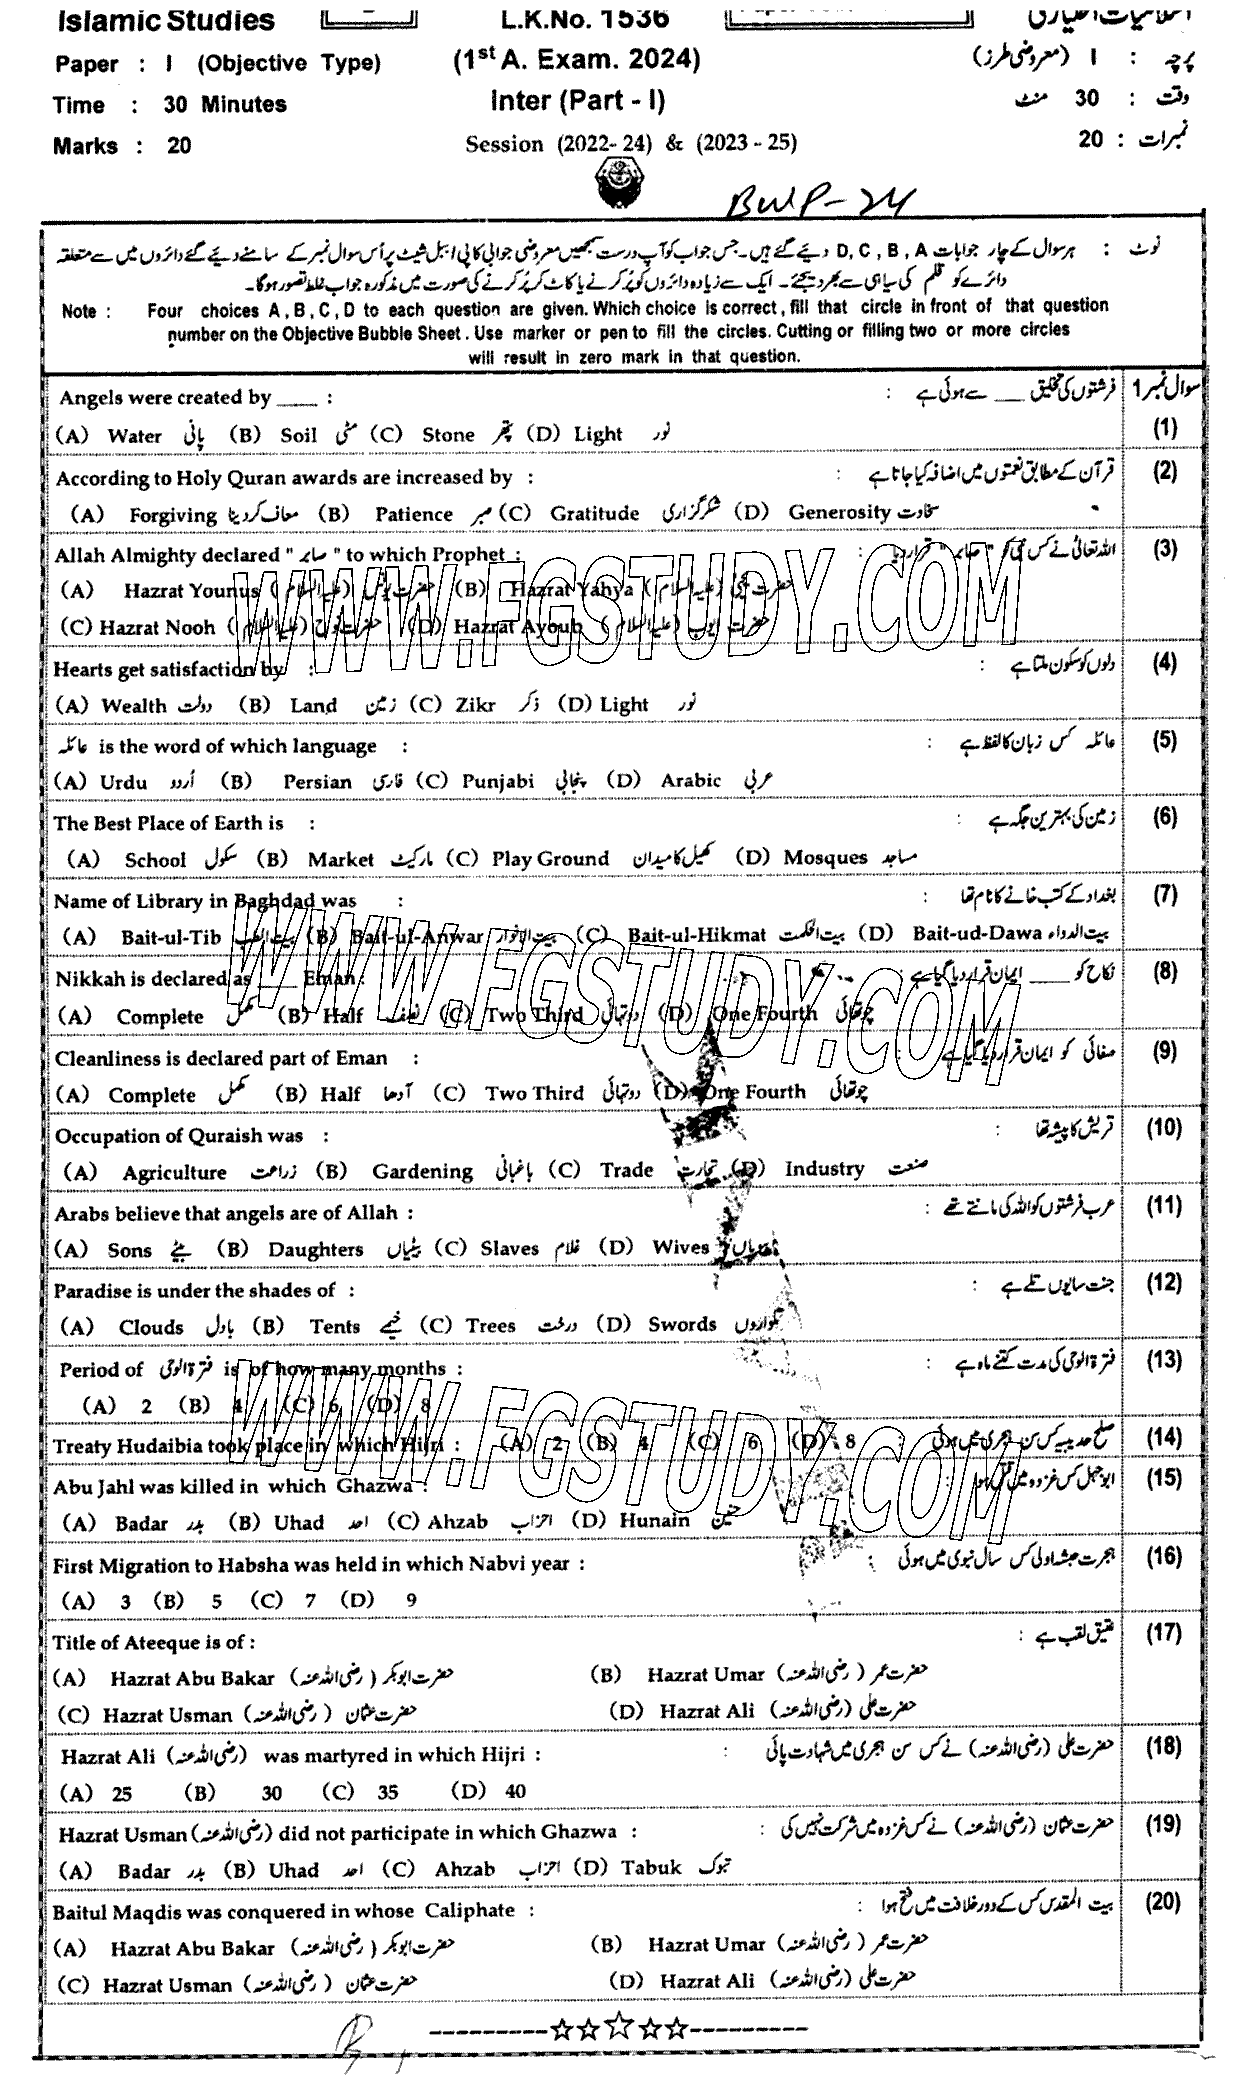 Islamic Studies L.K.No. 1536 اسلامیات اختیاری
Paper : I (Objective Type) (1st A. Exam. 2024) پرچہ : I (معروضی طرز)
Time : 30 Minutes Inter (Part - I) وقت : 30 منٹ
Marks : 20 Session (2022- 24) & (2023 - 25) نمبرات : 20
BWP-24
نوٹ : ہر سوال کے چار جوابات D, C, B, A دیئے گئے ہیں۔ جس جواب کو آپ درست سمجھیں معروضی جوابی کاپی / ببل شیٹ پر اُس سوال نمبر کے سامنے دیئے گئے دائروں میں سے متعلقہ
دائرے کو قلم کی سیاہی سے بھر دیجئے۔ ایک سے زیادہ دائروں کو پُر کرنے یا کاٹ کر پُر کرنے کی صورت میں مذکورہ جواب غلط تصور ہوگا۔
Note : Four choices A, B, C, D to each question are given. Which choice is correct, fill that circle in front of that question
number on the Objective Bubble Sheet. Use marker or pen to fill the circles. Cutting or filling two or more circles
will result in zero mark in that question.
Angels were created by ____ : فرشتوں کی تخلیق ___ سے ہوئی ہے : سوال نمبر 1
(A) Water پانی (B) Soil مٹی (C) Stone پتھر (D) Light نور (1)
According to Holy Quran awards are increased by : قرآن کے مطابق نعمتوں میں اضافہ کیا جاتا ہے : (2)
(A) Forgiving معاف کر دینا (B) Patience صبر (C) Gratitude شکر گزاری (D) Generosity سخاوت
Allah Almighty declared " صابر " to which Prophet : اللہ تعالیٰ نے کس نبی کو " صابر " قرار دیا : (3)
(A) Hazrat Younus حضرت یونس (علیہ السلام) (B) Hazrat Yahya حضرت یحیٰی (علیہ السلام)
(C) Hazrat Nooh حضرت نوح (علیہ السلام) (D) Hazrat Ayoub حضرت ایوب (علیہ السلام)
Hearts get satisfaction by : دلوں کو سکون ملتا ہے : (4)
(A) Wealth دولت (B) Land زمین (C) Zikr ذکر (D) Light نور
عائلہ is the word of which language : عائلہ کس زبان کا لفظ ہے : (5)
(A) Urdu اُردو (B) Persian فارسی (C) Punjabi پنجابی (D) Arabic عربی
The Best Place of Earth is : زمین کی بہترین جگہ ہے : (6)
(A) School سکول (B) Market مارکیٹ (C) Play Ground کھیل کا میدان (D) Mosques مساجد
Name of Library in Baghdad was : بغداد کے کتب خانے کا نام تھا : (7)
(A) Bait-ul-Tib بیت الطب (B) Bait-ul-Anwar بیت الانوار (C) Bait-ul-Hikmat بیت الحکمت (D) Bait-ud-Dawa بیت الدواء
Nikkah is declared as ____ Eman : نکاح کو ____ ایمان قرار دیا گیا ہے : (8)
(A) Complete مکمل (B) Half نصف (C) Two Third دو تہائی (D) One Fourth چوتھائی
Cleanliness is declared part of Eman : صفائی کو ایمان قرار دیا گیا ہے : (9)
(A) Complete مکمل (B) Half آدھا (C) Two Third دو تہائی (D) One Fourth چوتھائی
Occupation of Quraish was : قریش کا پیشہ تھا : (10)
(A) Agriculture زراعت (B) Gardening باغبانی (C) Trade تجارت (D) Industry صنعت
Arabs believe that angels are of Allah : عرب فرشتوں کو اللہ کی مانتے تھے : (11)
(A) Sons بیٹے (B) Daughters بیٹیاں (C) Slaves غلام (D) Wives
Paradise is under the shades of : جنت سایوں تلے ہے : (12)
(A) Clouds بادل (B) Tents خیمے (C) Trees درخت (D) Swords تلواروں
Period of فترۃ الوحی is of how many months : فترۃ الوحی کی مدت کتنے ماہ ہے : (13)
(A) 2 (B) 4 (C) 6 (D) 8
Treaty Hudaibia took place in which Hijri : (A) 2 (B) 4 (C) 6 (D) 8 صلح حدیبیہ کس سن ہجری میں ہوئی : (14)
Abu Jahl was killed in which Ghazwa : ابوجہل کس غزوہ میں قتل ہوا : (15)
(A) Badar بدر (B) Uhad احد (C) Ahzab احزاب (D) Hunain حنین
First Migration to Habsha was held in which Nabvi year : ہجرت حبشہ اولیٰ کس سال نبوی میں ہوئی : (16)
(A) 3 (B) 5 (C) 7 (D) 9
Title of Ateeque is of : عتیق لقب ہے : (17)
(A) Hazrat Abu Bakar حضرت ابوبکر (رضی اللہ عنہ) (B) Hazrat Umar حضرت عمر (رضی اللہ عنہ)
(C) Hazrat Usman حضرت عثمان (رضی اللہ عنہ) (D) Hazrat Ali حضرت علی (رضی اللہ عنہ)
Hazrat Ali (رضی اللہ عنہ) was martyred in which Hijri : حضرت علی (رضی اللہ عنہ) نے کس سن ہجری میں شہادت پائی : (18)
(A) 25 (B) 30 (C) 35 (D) 40
Hazrat Usman (رضی اللہ عنہ) did not participate in which Ghazwa : حضرت عثمان (رضی اللہ عنہ) نے کس غزوہ میں شرکت نہیں کی : (19)
(A) Badar بدر (B) Uhad احد (C) Ahzab احزاب (D) Tabuk تبوک
Baitul Maqdis was conquered in whose Caliphate : بیت المقدس کس کے دور خلافت میں فتح ہوا : (20)
(A) Hazrat Abu Bakar حضرت ابوبکر (رضی اللہ عنہ) (B) Hazrat Umar حضرت عمر (رضی اللہ عنہ)
(C) Hazrat Usman حضرت عثمان (رضی اللہ عنہ) (D) Hazrat Ali حضرت علی (رضی اللہ عنہ)
WWW.FGSTUDY.COM
WWW.FGSTUDY.COM
WWW.FGSTUDY.COM